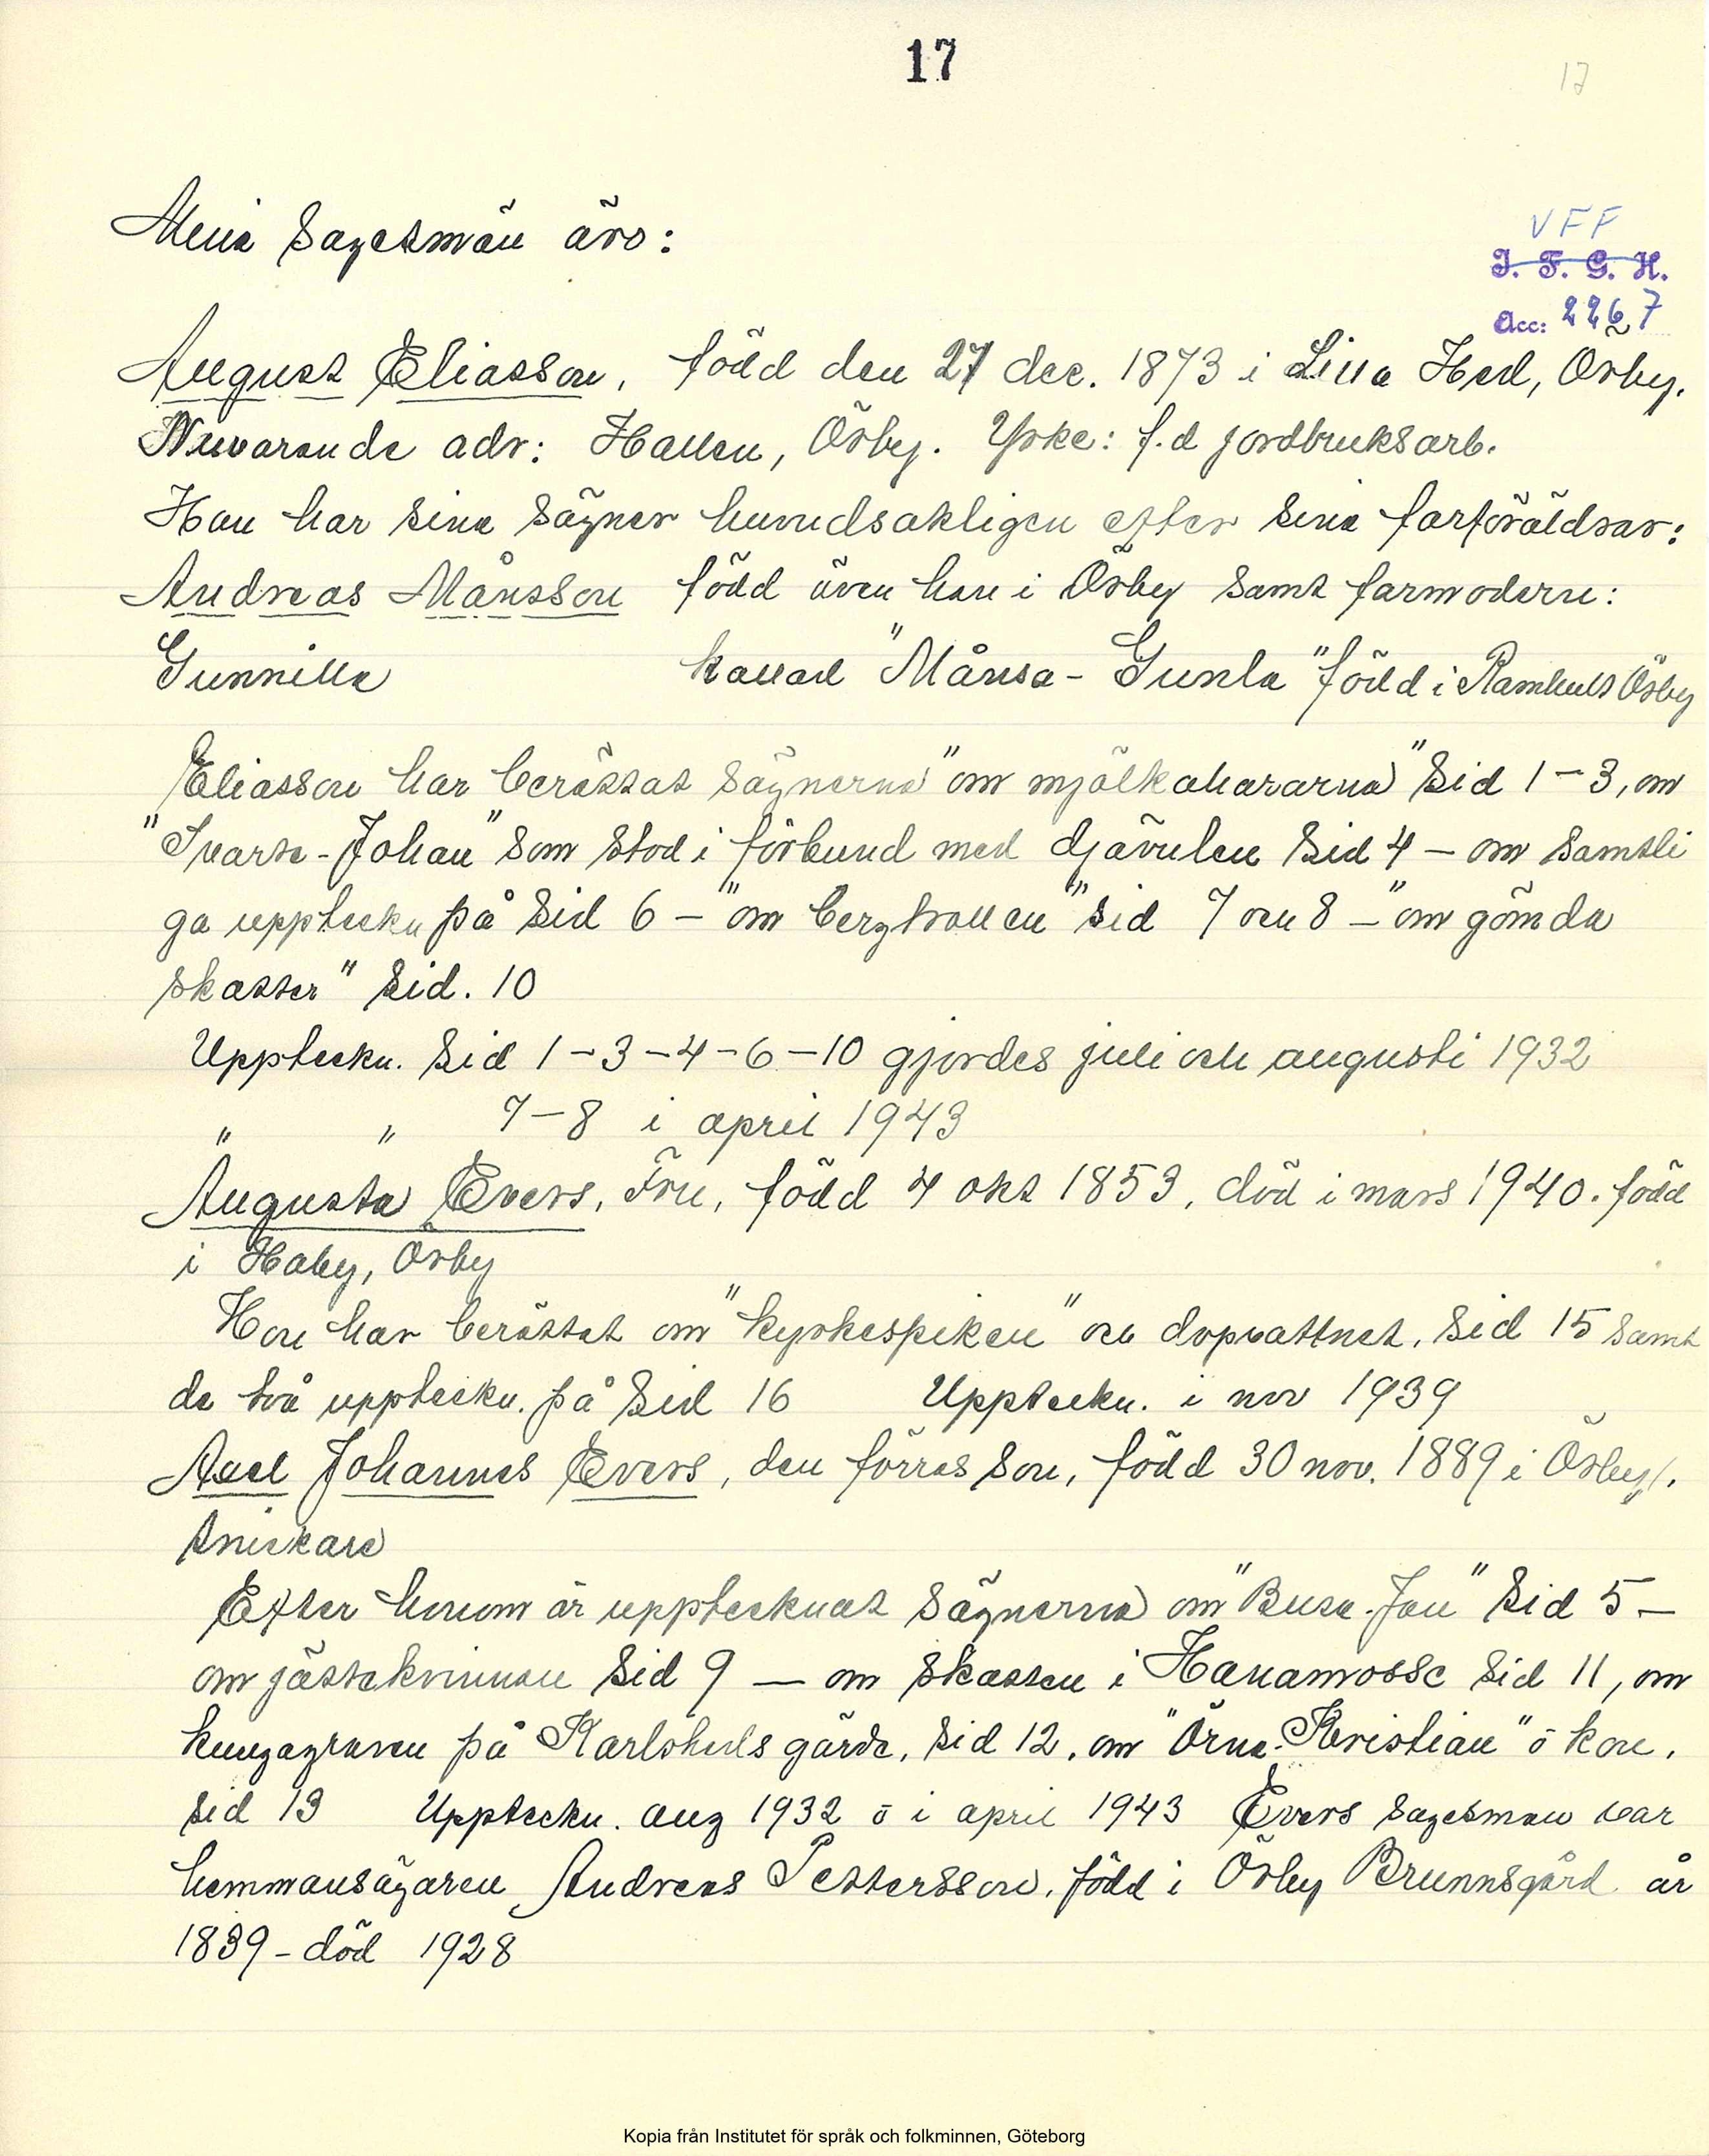 17
17
VFF
I. F. G. H.
Acc: 2267
Mina sagesmän äro:
August Eliasson, född den 27 dec. 1873 i Lilla Hed, Örby.
Nuvarande adr: Hallen, Örby. Yrke: f.d jordbruksarb.
Han har sina sägner huvudsakligen efter sina farföräldrar:
Andreas Månsson född även han i Örby samt farmodern:
Gunnilla kallad "Månsa-Gunla" född i Ramhult Örby
Eliasson har berättat sägnerna "om mjölkahararna" sid 1-3, om
"Svarta-Johan" som stod i förbund med djävulen sid 4 – om samtli
ga uppteckn på sid 6 – "om bergtrollen" sid 7 och 8 – "om gömda
skatter" sid. 10
Uppteckn. sid 1-3-4-6-10 gjordes juli och augusti 1932
" " 7-8 i april 1943
Augusta Evers, Fru, född 4 okt 1853, död i mars 1940. född
i Haby, Örby
Hon har berättat om "kyrkespiken" och dopvattnet, sid 15 samt
de två uppteckn. på sid 16 Uppteckn. i nov 1939
Axel Johannes Evers, den förras son, född 30 nov. 1889 i Örby.
snickare
Efter honom är upptecknat sägnerna om "Busa-Jan" sid 5 –
om jästekvinnan sid 9 – om skatten i Hanamosse sid 11, om
kungagraven på Karlshuls gärde, sid 12, om "Örna-Kristian" ō kon,
sid 13 Uppteckn. aug 1932 ō i april 1943 Evers sagesman var
hemmansägaren Andreas Pettersson, född i Örby Brunnsgård år
1839 – död 1928
Kopia från Institutet för språk och folkminnen, Göteborg